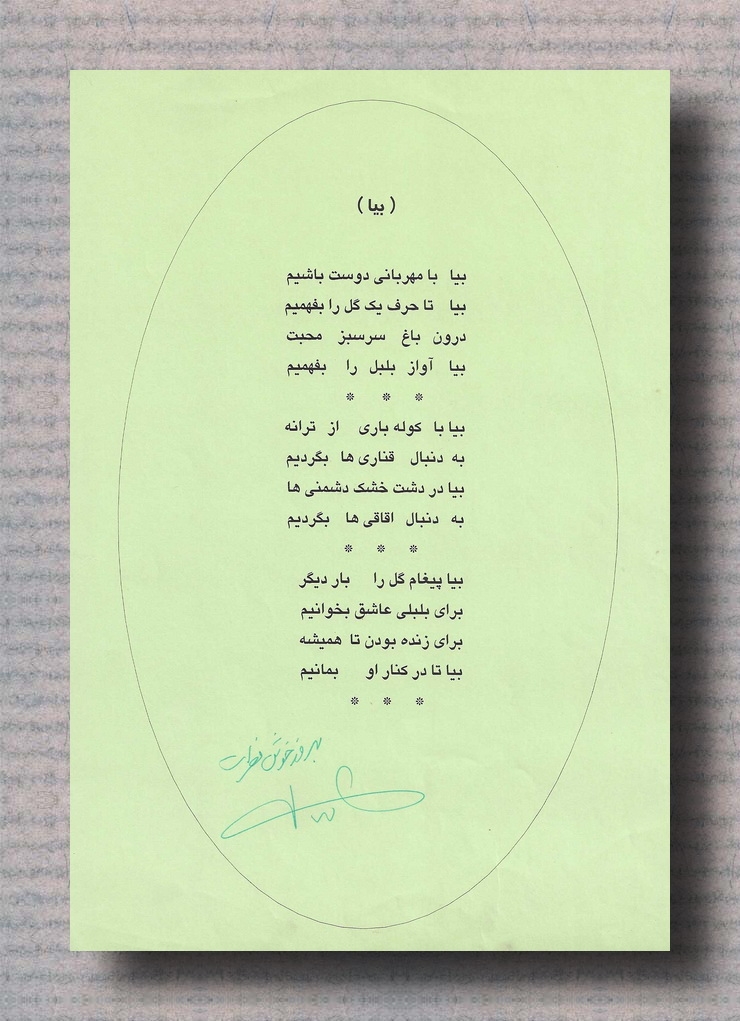 ( بیا )
بیا با مهربانی دوست باشیم
بیا تا حرف یک گل را بفهمیم
درون باغ سرسبز محبت
بیا آواز بلبل را بفهمیم
* * *
بیا با کوله باری از ترانه
به دنبال قناری ها بگردیم
بیا در دشت خشک دشمنی ها
به دنبال اقاقی ها بگردیم
* * *
بیا پیغام گل را بار دیگر
برای بلبلی عاشق بخوانیم
برای زنده بودن تا همیشه
بیا تا در کنار او بمانیم
* * *
بهروز خوش فطرت